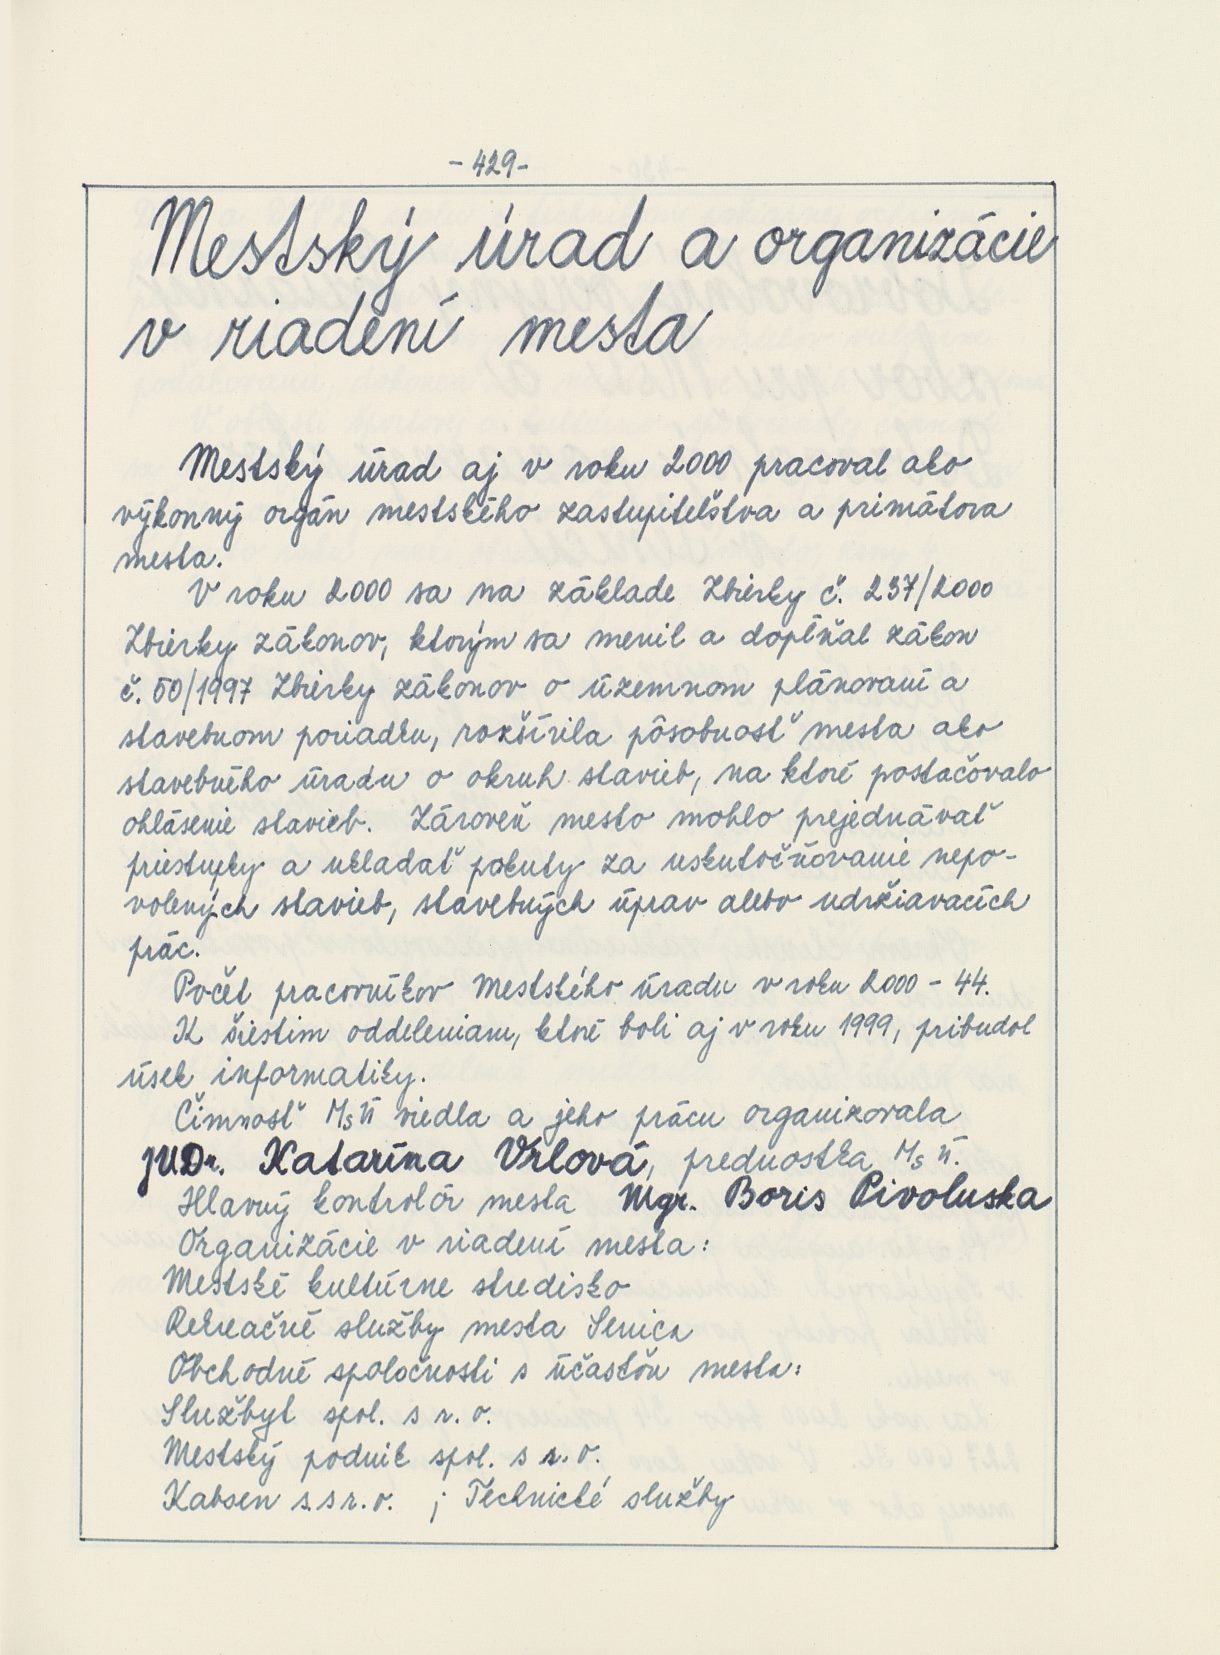 - 429 -
Mestský úrad a organizácie
v riadení mesta
Mestský úrad aj v roku 2000 pracoval ako
výkonný orgán mestského zastupiteľstva a primátora
mesta.
V roku 2000 sa na základe Zbierky č. 237/2000
Zbierky zákonov, ktorým sa menil a dopĺňal zákon
č. 50/1997 Zbierky zákonov o územnom plánovaní a
stavebnom poriadku, rozšírila pôsobnosť mesta ako
stavebného úradu o okruh stavieb, na ktoré postačovalo
ohlásenie stavieb. Zároveň mesto mohlo prejednávať
priestupky a ukladať pokuty za uskutočňovanie nepo-
volených stavieb, stavebných úprav alebo udržiavacích
prác.
Počet pracovníkov Mestského úradu v roku 2000 - 44.
K šiestim oddeleniam, ktoré boli aj v roku 1999, pribudol
úsek informatiky.
Činnosť MsÚ viedla a jeho prácu organizovala
JUDr. Katarína Vrlová, prednostka MsÚ.
Hlavný kontrolór mesta Mgr. Boris Pivoluska
Organizácie v riadení mesta:
Mestské kultúrne stredisko
Rekreačné služby mesta Senica
Obchodné spoločnosti s účasťou mesta:
Službyt spol. s r. o.
Mestský podnik spol. s r. o.
Kabsen s.s r. o. ; Technické služby